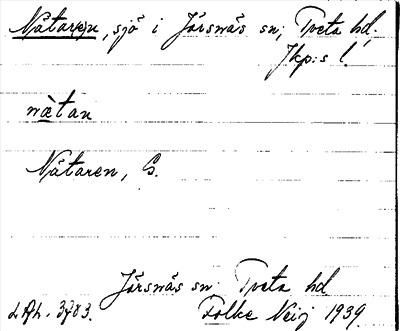 Nätar(e)n, sjö i Järsnäs sn; Tveta hd,
Jkp:s l.
nätan
Nätaren, G.
Järsnäs sn Tveta hd
LAL. 3783. Folke Neij 1939.